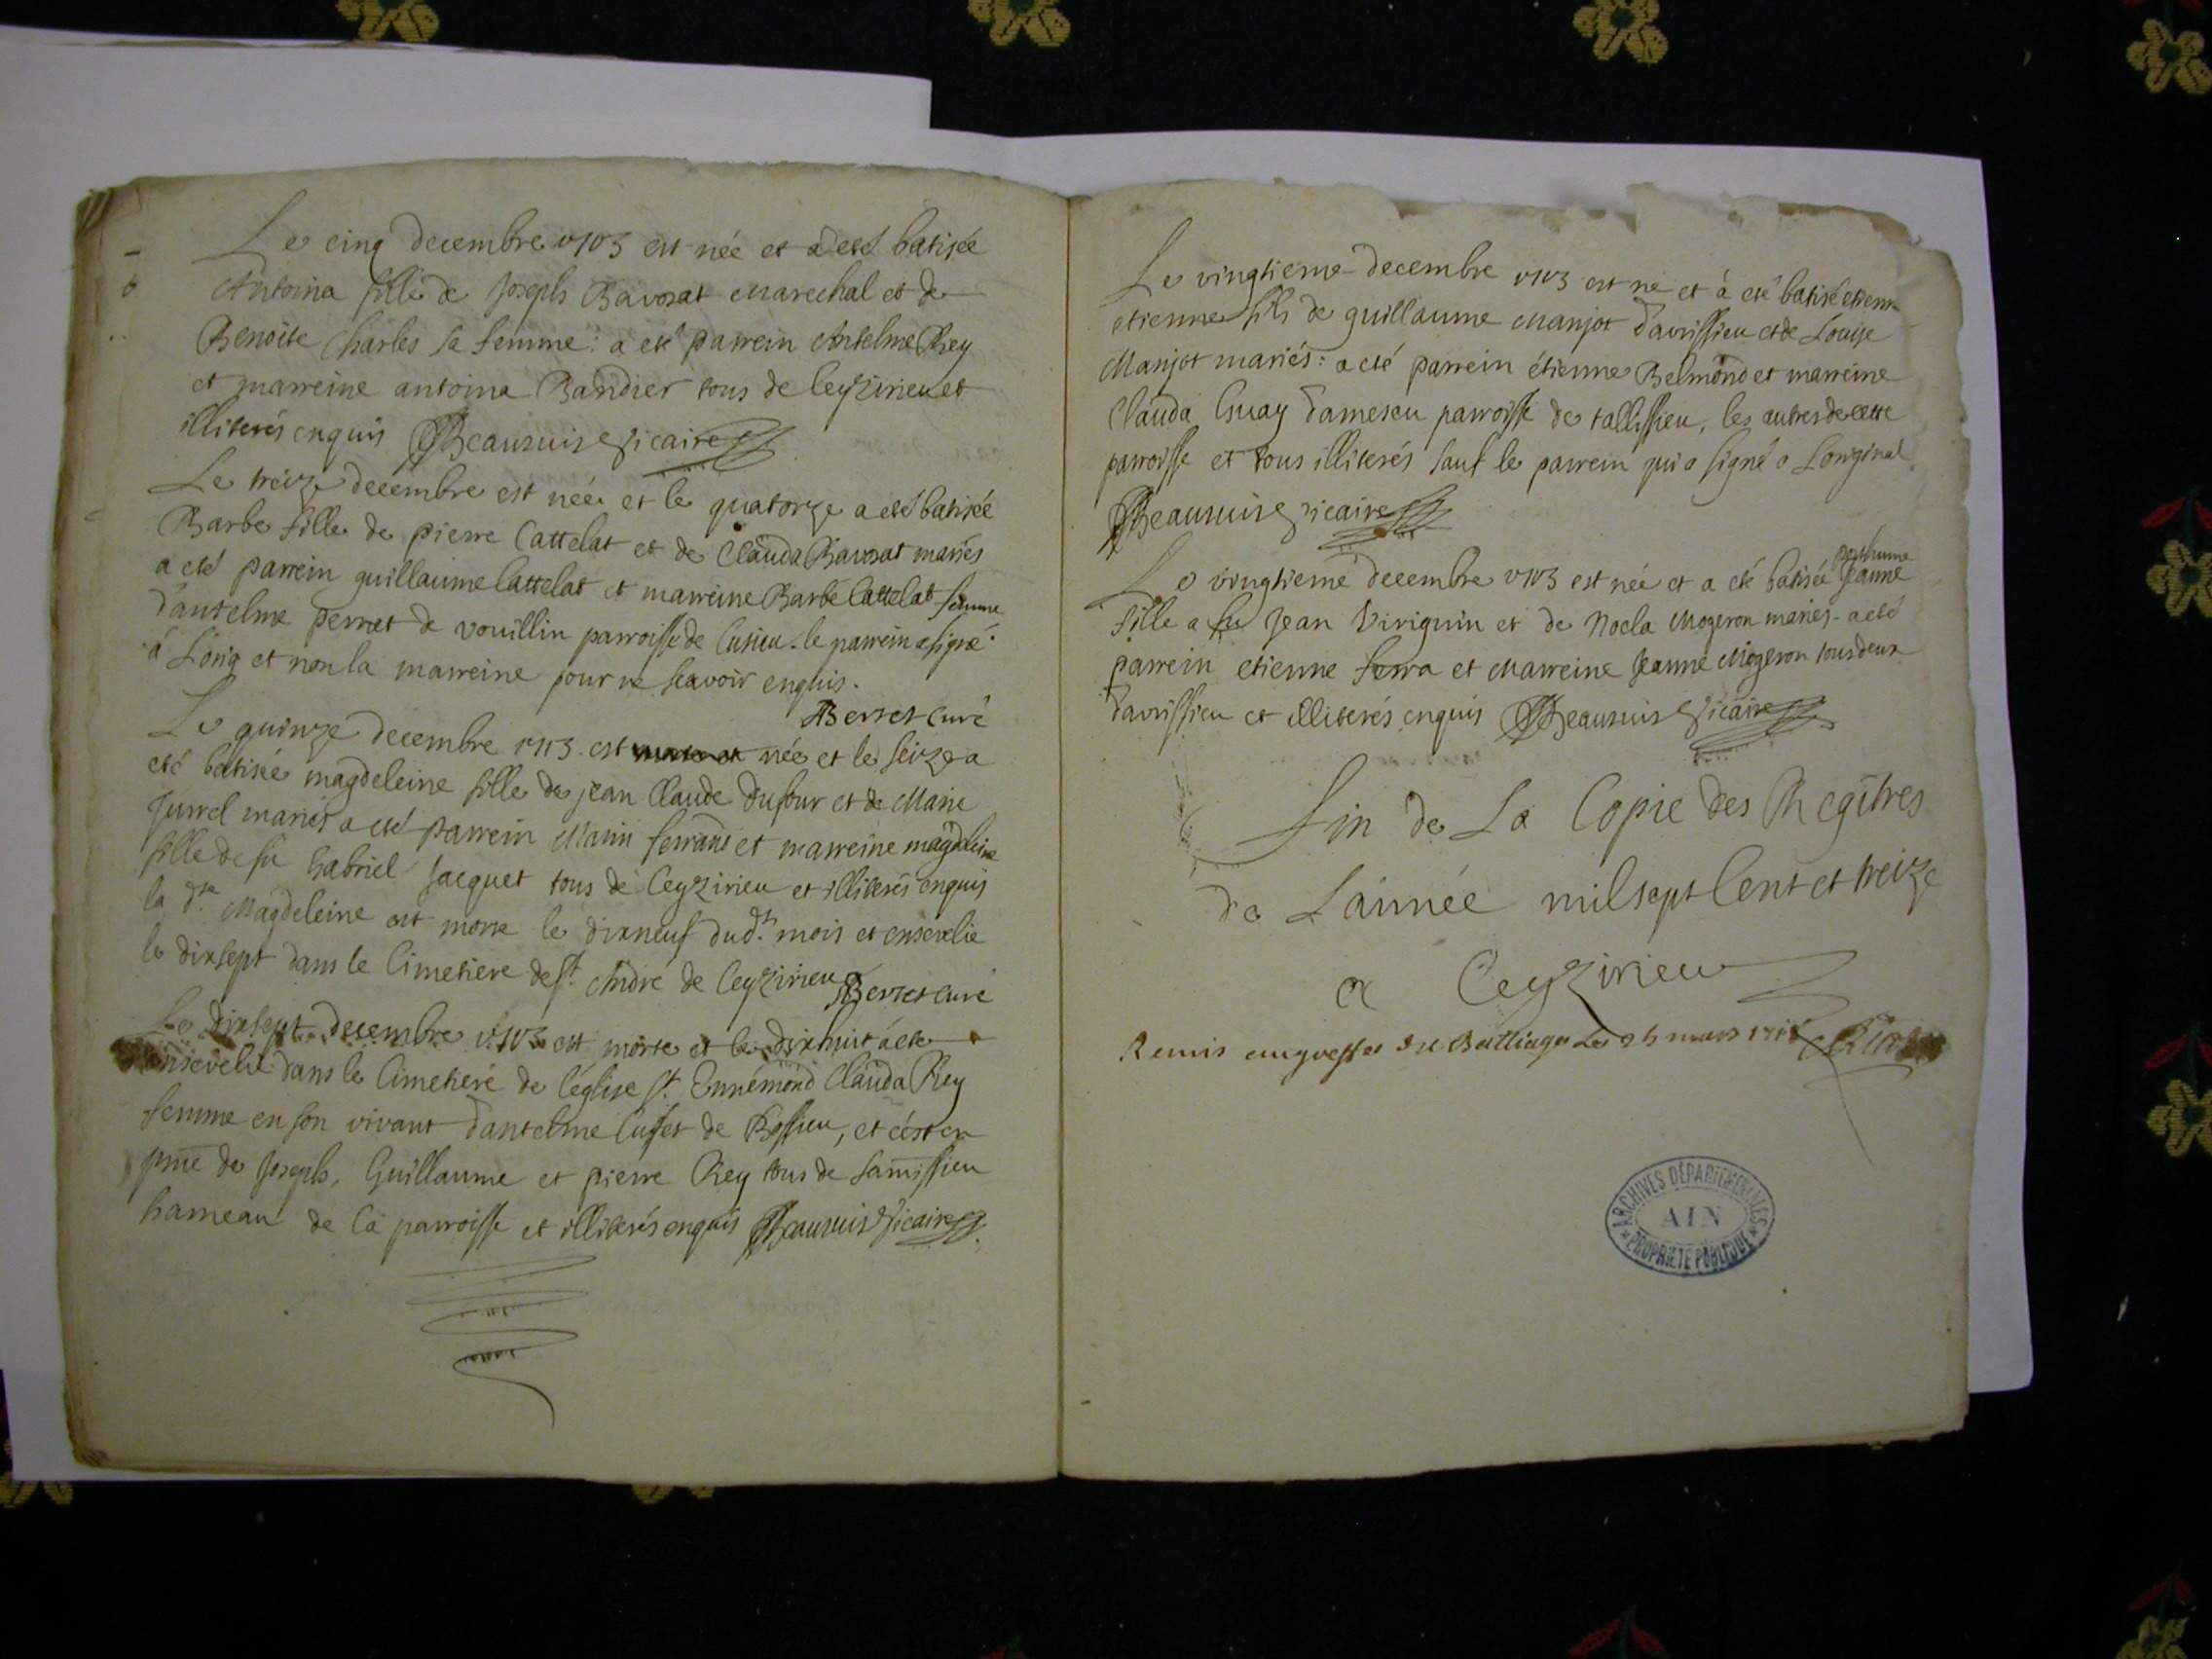 Le cinq decembre 1713 est née et a eté batisée
Antoina fille de Joseph Bavosat marechal et de
Benoite Charles sa femme : a eté parrein Antelme Rey
et marreine antoina Bandier tous de Ceyzirieu et
illiterés enquis Beausuis vicaire
Le treize decembre est née et le quatorze a eté batisée
Barbe fille de pierre Cattelat et de Clauda Bavosat mariés
a eté parrein guillaume Cattelat et marreine Barbe Cattelat femme
d'antelme perret de vouillin parroisse de Cusieu . le parrein a signé
à L'orig et non la marreine pour ne scavoir enquis .
Berret curé
Le quinze decembre 1713 est née et le seize a
eté batisée magdeleine fille de jean Claude Dufour et de Marie
Jurrel mariés a eté parrein ferrand et marreine magdeleine
fille de fu Gabriel Jacquet tous de Ceyzirieu et illiterés enquis
la dte Magdeleine est morte le dixneuf dud.t mois et ensevelie
le dixsept dans le Cimetiere de St. André de Ceyzirieu
Berret curé
Le dixsept decembre 1713 est morte et le dixhuit à eté
ensevelie dans le Cimetiere de l'église St. Ennémond Clauda Rey
femme en son vivant d'antelme de Bessieu, et c'est en
pnce de Joseph, Guillaume et pierre Rey tous de
hameau de la parroisse et illiterés enquis Beausuis vicaire
Le vingtieme decembre 1713 est ne et à eté batisé etienne
etienne fils de guillaume Manjot d'avrissieu et de Louise
Manjot mariés : a eté parrein étienne Belmond et marreine
Clauda Guay d'ameseu parroisse de tallissieu, les autres de cette
parroisse et tous illiterés sauf le parrein qui a signé a L'original
Beausuis vicaire
posthume
Le vingtieme decembre 1713 est née et a eté batisée Jeanne
fille a fu Jean Viriguin et de Noela Mogeron mariés - a eté
parrein etienne ferra et Marreine Jeanne Mogeron tous deux
d'avrissieu et illiterés enquis Beausuis vicaire
fin de La Copie des Regîtres
de L'année mil sept Cent et treize
a Ceyzirieu
Remis au greffe du Balliage Le mars
ARCHIVES DÉPARTEMENTALES
AIN
PROPRIÉTÉ PUBLIQUE